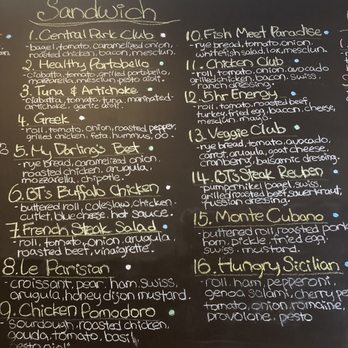 Sandwich
1. Central Park Club
- bagel, tomato, caramelized onion,
roasted chicken, bacon, mesclun
2. Healthy Portobello
- ciabatta, tomato, grilled portobello,
mozzarella, mesclun, pesto aioli
3. Tuna & Artichoke
- ciabatta, tomato, tuna, marinated
artichoke, garlic aioli.
4. Greek
- roll, tomato, onion, roasted pepper,
grilled chicken, feta, hummus,
5. My Darling's Best
- rye bread, caramelized onion,
roasted chicken, arugula,
mozzarella, chipotle.
6. GT's Buffalo Chicken
- buttered roll, coleslaw, chicken
cutlet, blue cheese, hot sauce.
7. French Steak Salad
- roll, tomato, onion, arugula
roasted beef, vinaigrette.
8. Le Parisian
- croissant, pear, ham, swiss,
arugula, honey dijon mustard.
9. Chicken Pomodoro
- sourdough, roasted chicken,
gouda, tomato, basil
10. Fish Meet Paradise
- rye bread, tomato, onion,
whitefish salad, mesclun.
11. Chicken Club
- roll, tomato, onion, avocado
grilled chicken, bacon, swiss,
ranch dressing.
12. 5hr Energy
- roll, tomato, roasted beef,
turkey, fried egg, bacon, cheese,
mesclun, mayo
13. Veggie Club
- rye bread, tomato, avocado,
carrot, arugula, goat cheese,
cranberry, balsamic dressing.
14. GT's Steak Reuben
- pumpernickel bagel, swiss,
grilled roasted beef, sauerkraut,
russian dressing.
15. Monte Cubano
- buttered roll, roasted pork,
ham, pickle, fried egg,
swiss, mustard.
16. Hungry Sicilian
- roll, ham, pepperoni,
genoa salami, cherry pepper,
tomato, onion, romaine,
provolone, pesto